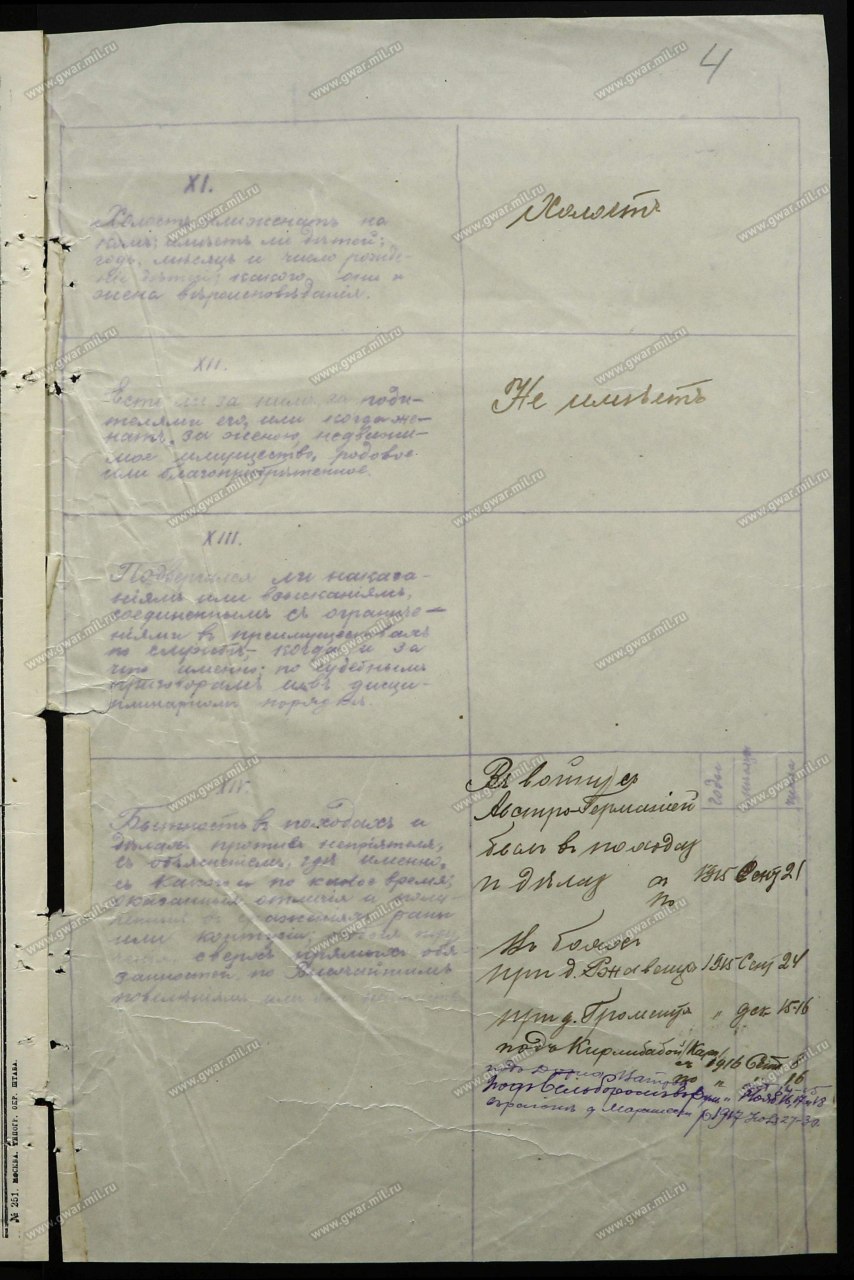 4
XI.
Холостъ или женатъ на
комъ; имѣетъ ли дѣтей;
годъ, мѣсяцъ и число рожде-
нія дѣтей; какого они и
жена вѣроисповѣданія.
Холостъ
XII.
Есть ли за нимъ, за роди-
телями его, или когда же-
натъ, за женою, недвижи-
мое имущество, родовое
или благопріобрѣтенное.
Не имѣетъ
XIII.
Подвергался ли наказа-
ніямъ или взысканіямъ,
соединеннымъ съ ограниче-
ніями въ преимуществахъ
по службѣ, когда и за
что именно; по судебнымъ
приговорамъ или въ дисци-
плинарномъ порядкѣ.
XIV.
Бытность въ походахъ и
дѣлахъ противъ непріятеля,
съ объясненіемъ, гдѣ именно,
съ какого и по какое время;
оказанныя отличія и получен-
ныя въ сраженіяхъ раны
или контузіи;
сверхъ прямыхъ обя-
занностей по Высочайшимъ
повелѣніямъ или
годы
мѣсяцы
числа
Въ войну съ
Австро-Германіей
былъ въ походах
и дѣлах съ 1915 Сент 21
по
Въ бояхъ
при д. 1915 Сент 24
при д. " Дек 15-16
подъ Кирлибабой 1916 Сент 8
по " 16
подъ
подъ " Нояб 16, 17 и 18
въ районѣ д. 1917 27-30
№ 251. МОСКВА. ТИПОГР. ОКР. ШТАБА.
www.gwar.mil.ru